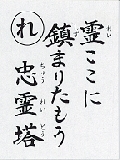 霊ここに
鎮まりたもう
忠霊塔
れ
れい
ず
ちゅうれいとう